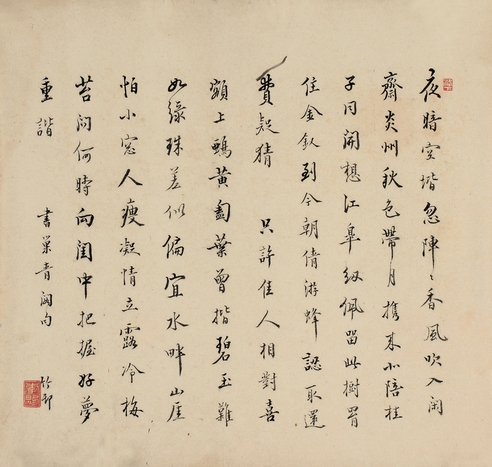 夜暗空堦忽陣〻香風吹入閑
齋炎州秋色帶月携来小陪桂
子同開想江皋紉佩留此樹罥
住金釵到今朝倩游蜂認取還
費疑猜 只許佳人相對喜
額上鵝黃葉曾揩碧玉難
如緑珠差似偏宜水畔山厓
怕小窓人瘦凝情立露冷梅
苔问何時向闺中把握好夢
重諧
書巢青閣句